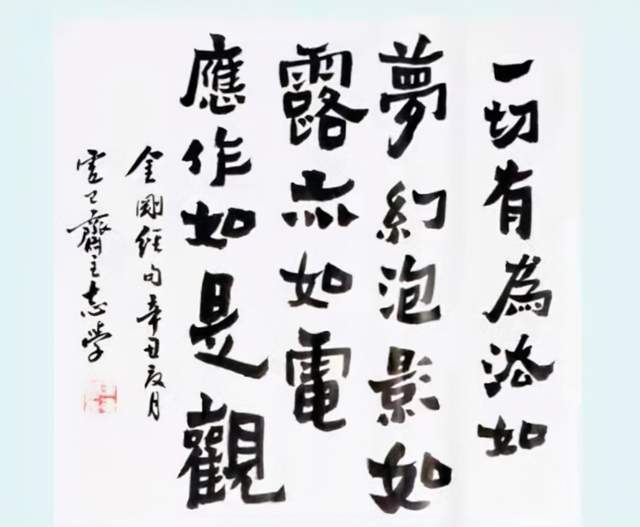 一切有為法如
夢幻泡影如
露亦如電
應作如是觀
金剛經句辛丑夏月
齋主志學